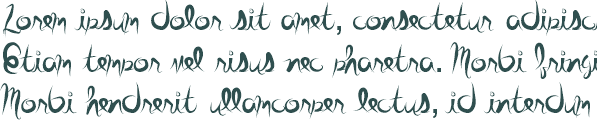 Lorem ipsum dolor sit amet, consectetur adipisc
Etiam tempor vel risus nec pharetra. Morbi fringi
Morbi hendrerit ullamcorper lectus, id interdum